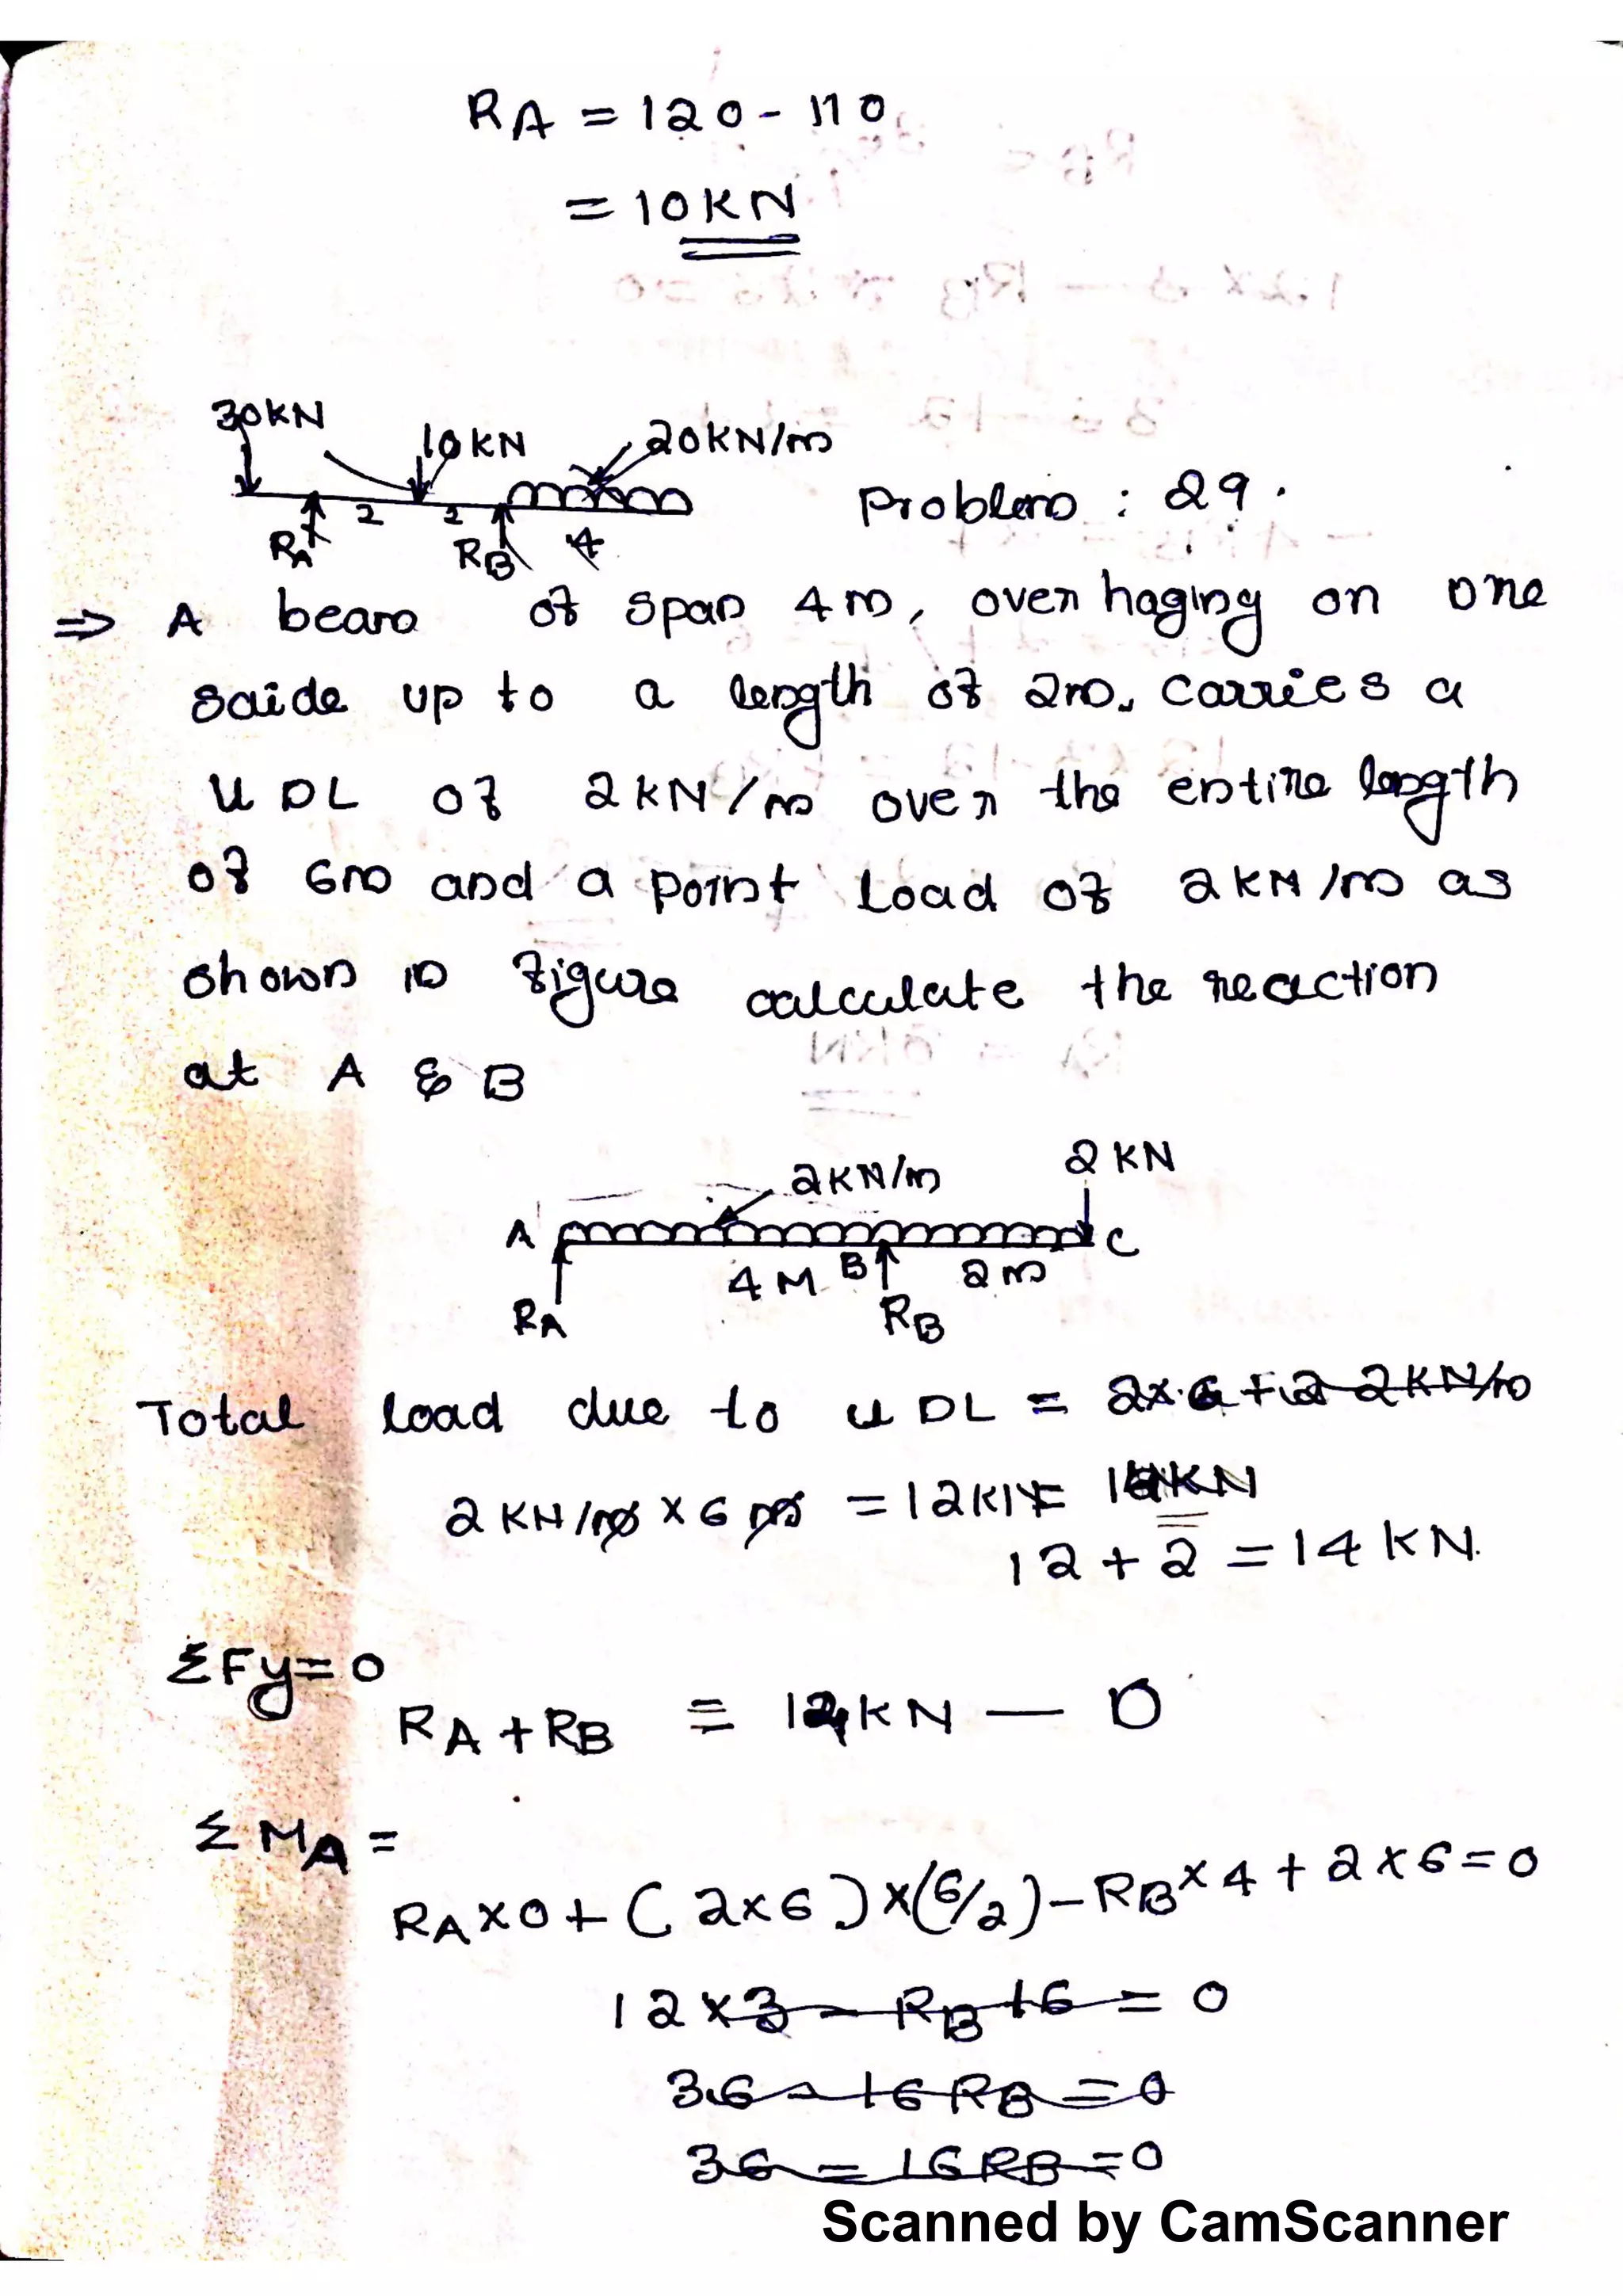 RA = 120 - 110
= 10KN
30KN
10KN
20KN/m
2
2
4
RA
RB
Problem : 29.
⇒ A beam of span 4m, over haging on one
saide up to a length of 2m, carries a
UDL of 2KN/m over the entire length
of 6m and a point Load of 2KN/m as
shown in figure calculate the reaction
at A & B
2KN/m
2 KN
A
C
4 M
B
2m
RA
RB
Total load due to UDL = 2x6+2 2KN/m
2 KN/m x 6 m = 12KN =
12 + 2 = 14 KN.
ΣFy=0
RA + RB = 14KN —
Σ MA =
RA x 0 + ( 2x6 ) x (6/2) - RB x 4 + 2 x 6 = 0
12 x 3 - RB 16 = 0
36 - 16 RB = 0
36 = 16RB = 0
Scanned by CamScanner